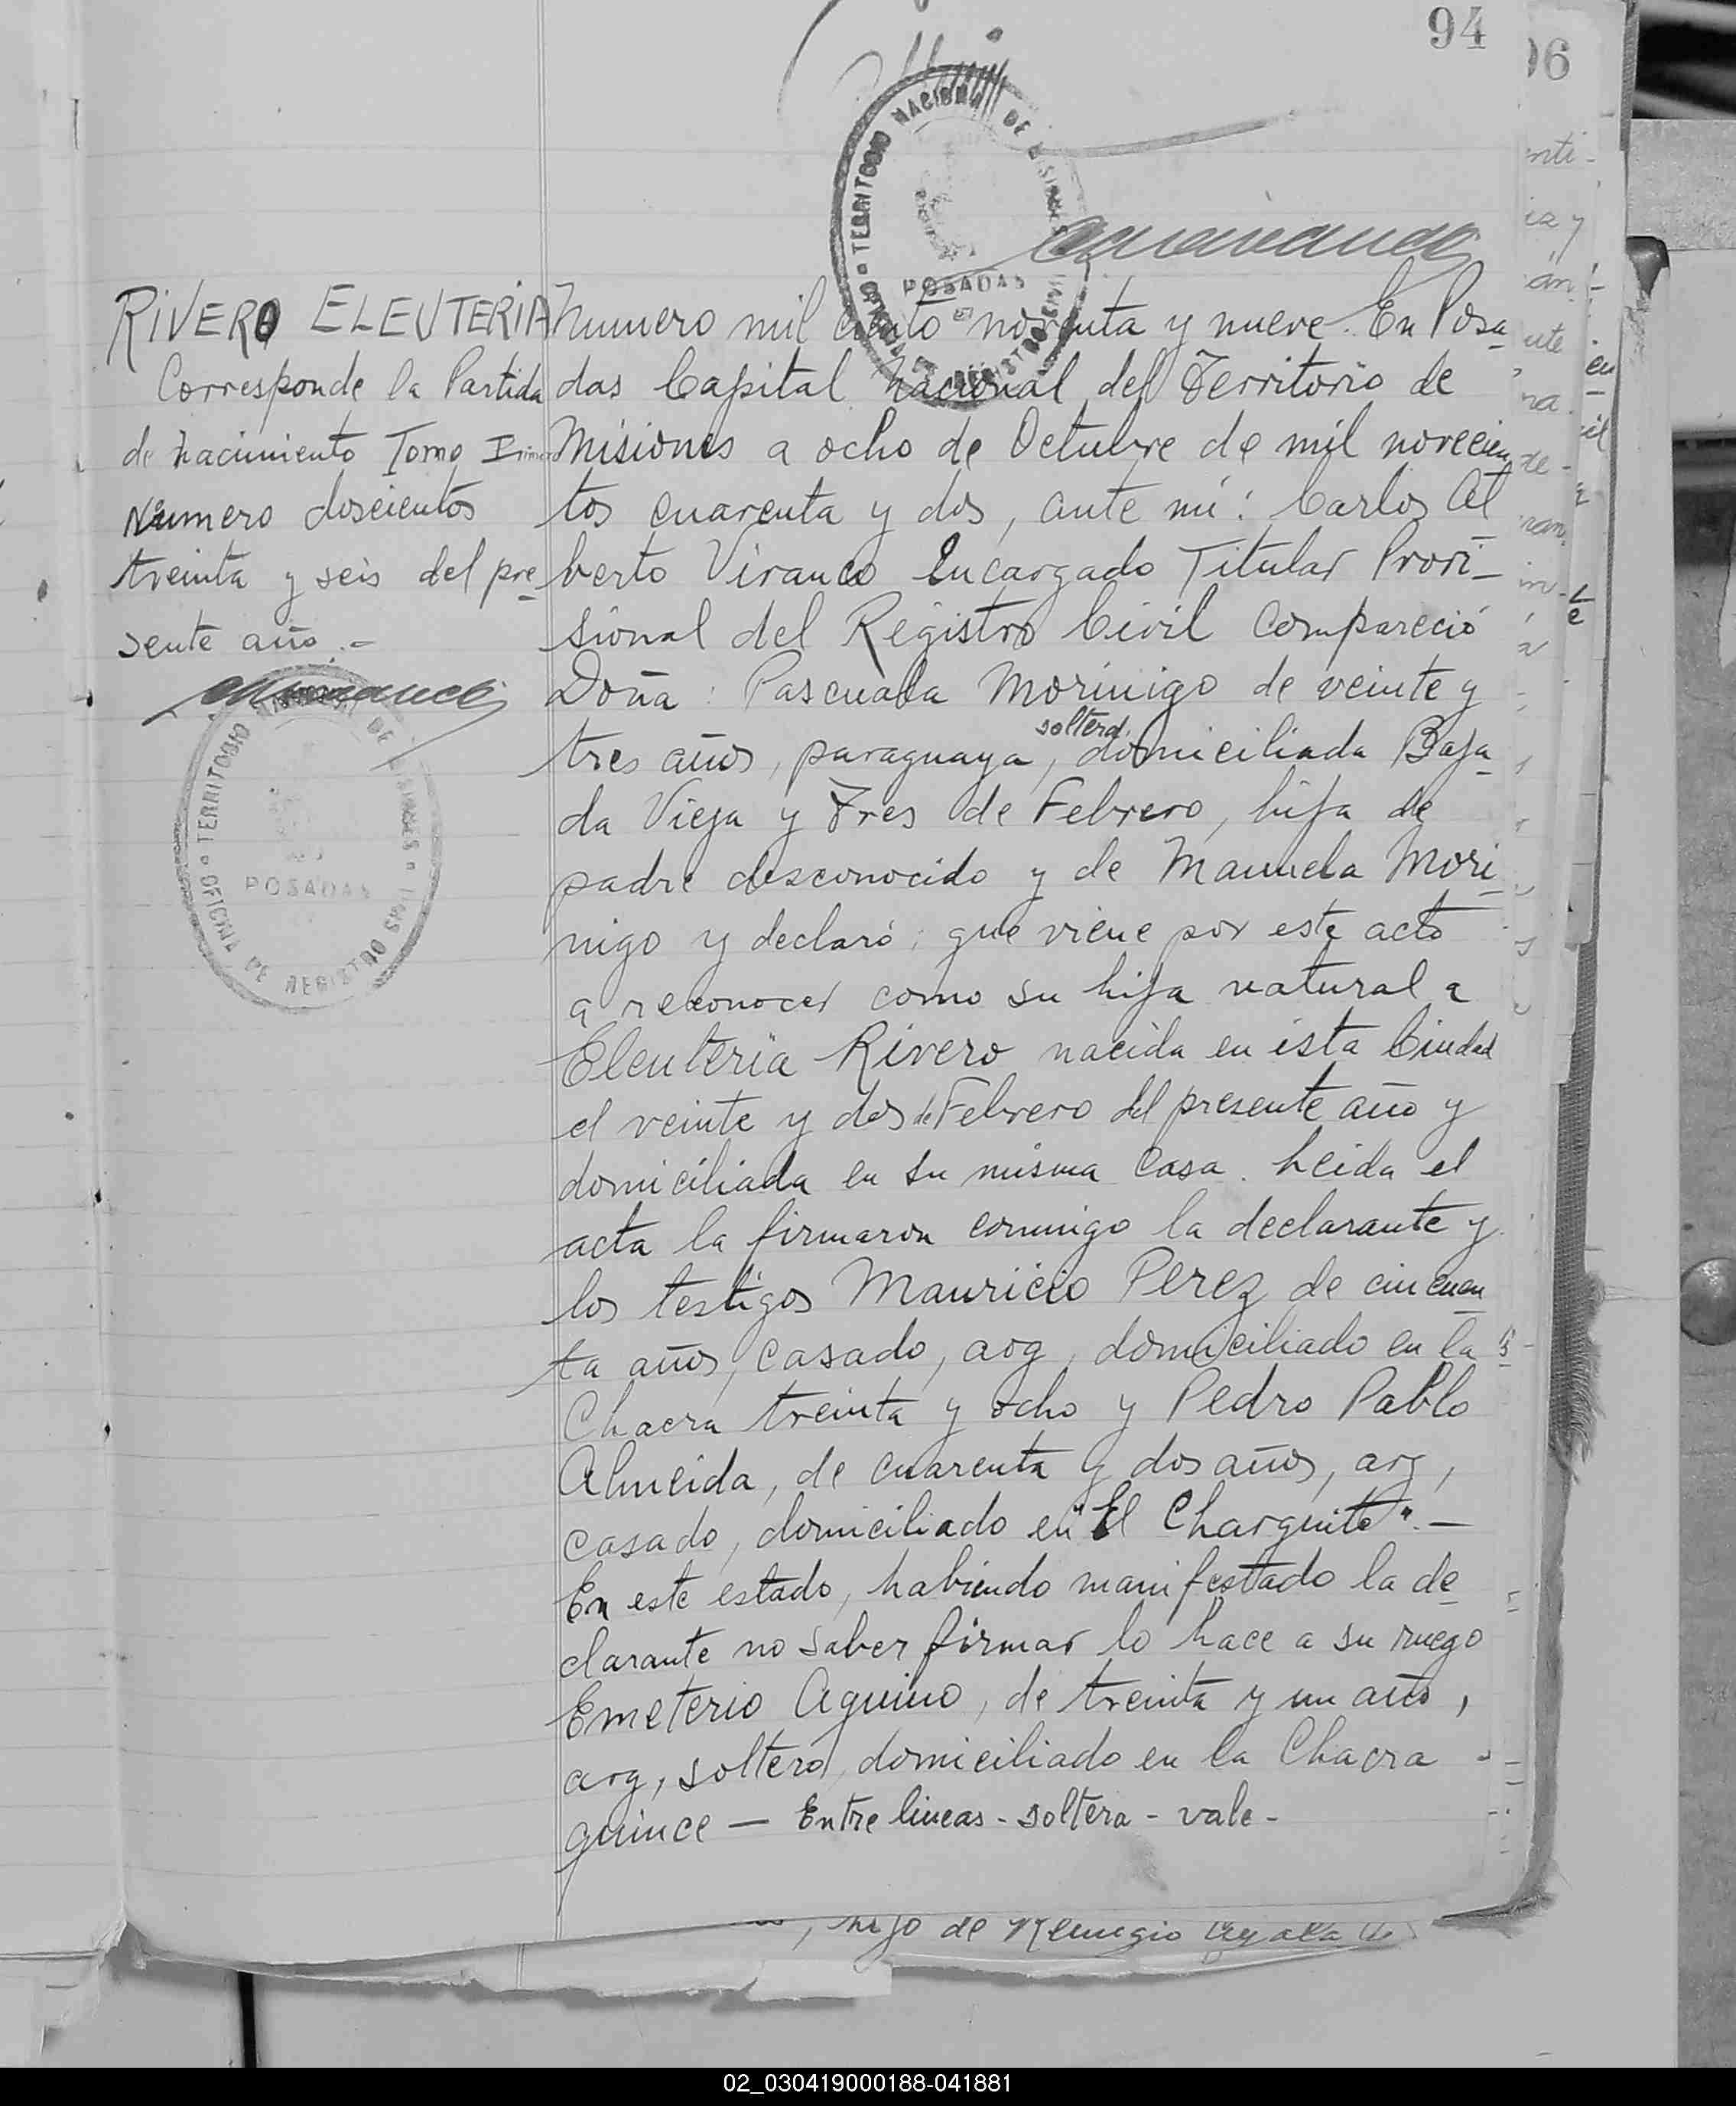 94
96
TERRITORIO NACIONAL DE MISIONES
POSADAS
RIVERO ELEUTERIA
Corresponde la Partida
de Nacimiento Tomo Primer
Numero doscientos
treinta y seis del pre
sente año.-
OFICINA DE REGISTRO CIVIL
TERRITORIO NACIONAL DE MISIONES
POSADAS
Numero mil ciento noventa y nueve. En Posa
das Capital Nacional del Territorio de
Misiones a ocho de Octubre de mil novecien
tos cuarenta y dos, ante mi: Carlos Al
berto Viranco Encargado Titular Provi-
sional del Registro Civil Compareció
Doña: Pascuala Morinigo de veinte y
tres años, paraguaya, soltera, domiciliada Baja
da Vieja y Tres de Febrero, hija de
padre desconocido y de Manuela Mori
nigo y declaró: que viene por este acto
a reconocer como su hija natural a
Eleuteria Rivero nacida en ésta Ciudad
el veinte y dos de Febrero del presente año y
domiciliada en su misma casa. Leida el
acta la firmaron conmigo la declarante y
los testigos Mauricio Perez de cincuen
ta años, casado, arg, domiciliado en la
Chacra treinta y ocho y Pedro Pablo
Almeida, de cuarenta y dos años, arg,
casado, domiciliado en "El Charquito".-
En este estado, habiendo manifestado la de
clarante no saber firmar lo hace a su ruego
Emeterio Aquino, de treinta y un año,
arg, soltero, domiciliado en la Chacra
quince — Entre lineas - soltera - vale -
, hijo de Remigio Ayala
02_030419000188-041881